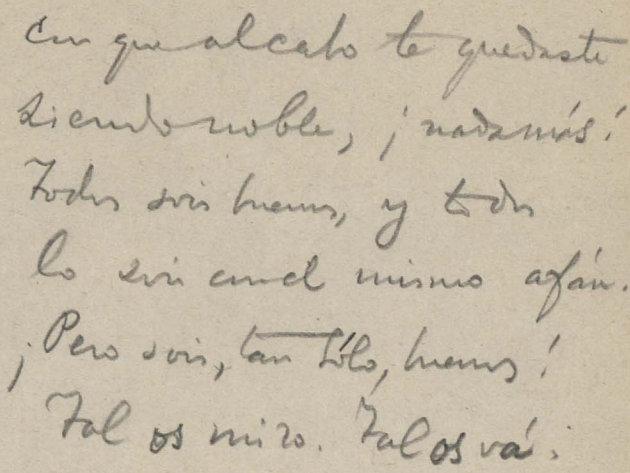 en que al cabo te quedaste
siendo noble, ¡nada más!
Todos sois buenos, y todos
lo sois con el mismo afán.
¡Pero sois, tan sólo, buenos!
Tal os miro. Tal os vá: